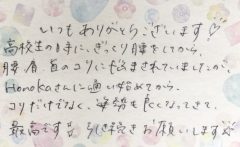 いつもありがとうございます♡
高校生の時にぎっくり腰をしてから、
腰、肩、首のコリに悩まされていましたが、
Honokaさんに通い始めてから、
コリだけでなく、姿勢も良くなってきて、
最高です!! 引き続きお願いします